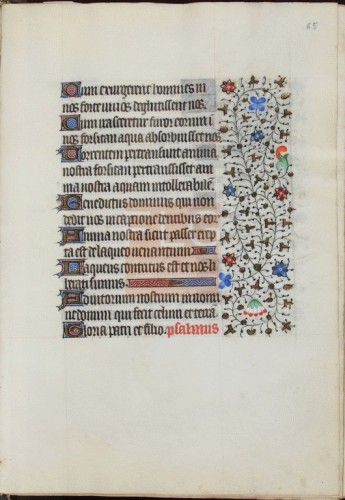 65
Cum exurgerent homines in
nos forte vivos deglutissent nos
Cum irasceretur furor eorum i
nos forsitan aqua absorbuisset nos
Torrentem pertransivit anima
nostra forsitan pertransisset ani
ma nostra aquam intollerabilem
Benedictus dominus qui non
dedit nos in captione dentibus eor
Anima nostra sicut passer erep
ta est de laqueo venantium
Laqueus contritus est et nos li
berati sumus
Adiutorium nostrum in nomi
ne domini qui fecit celum et terra
Gloria patri et filio psalmus